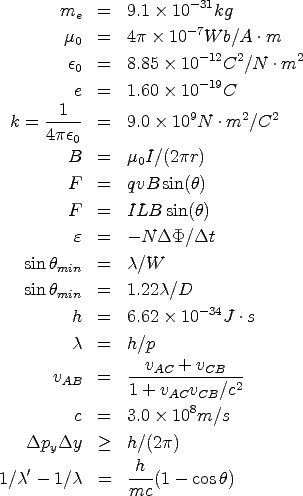 m_e = 9.1 × 10^{-31}kg
μ_0 = 4π × 10^{-7}Wb/A · m
ϵ_0 = 8.85 × 10^{-12}C^2/N · m^2
e = 1.60 × 10^{-19}C
k = \frac{1}{4πϵ_0} = 9.0 × 10^9N · m^2/C^2
B = μ_0I/(2πr)
F = qvB sin(θ)
F = ILB sin(θ)
ε = −NΔΦ/Δt
sin θ_{min} = λ/W
sin θ_{min} = 1.22λ/D
h = 6.62 × 10^{-34}J · s
λ = h/p
v_{AB} = \frac{v_{AC} + v_{CB}}{1 + v_{AC}v_{CB}/c^2}
c = 3.0 × 10^8m/s
Δp_yΔy ≥ h/(2π)
1/λ′ − 1/λ = \frac{h}{mc}(1 − cos θ)